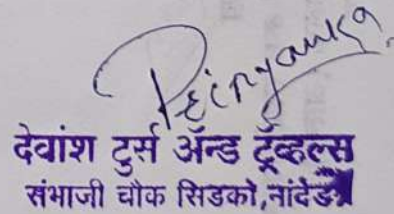 Priyanka
देवांश टुर्स ॲन्ड ट्रॅव्हल्स
संभाजी चौक सिडको,नांदेड